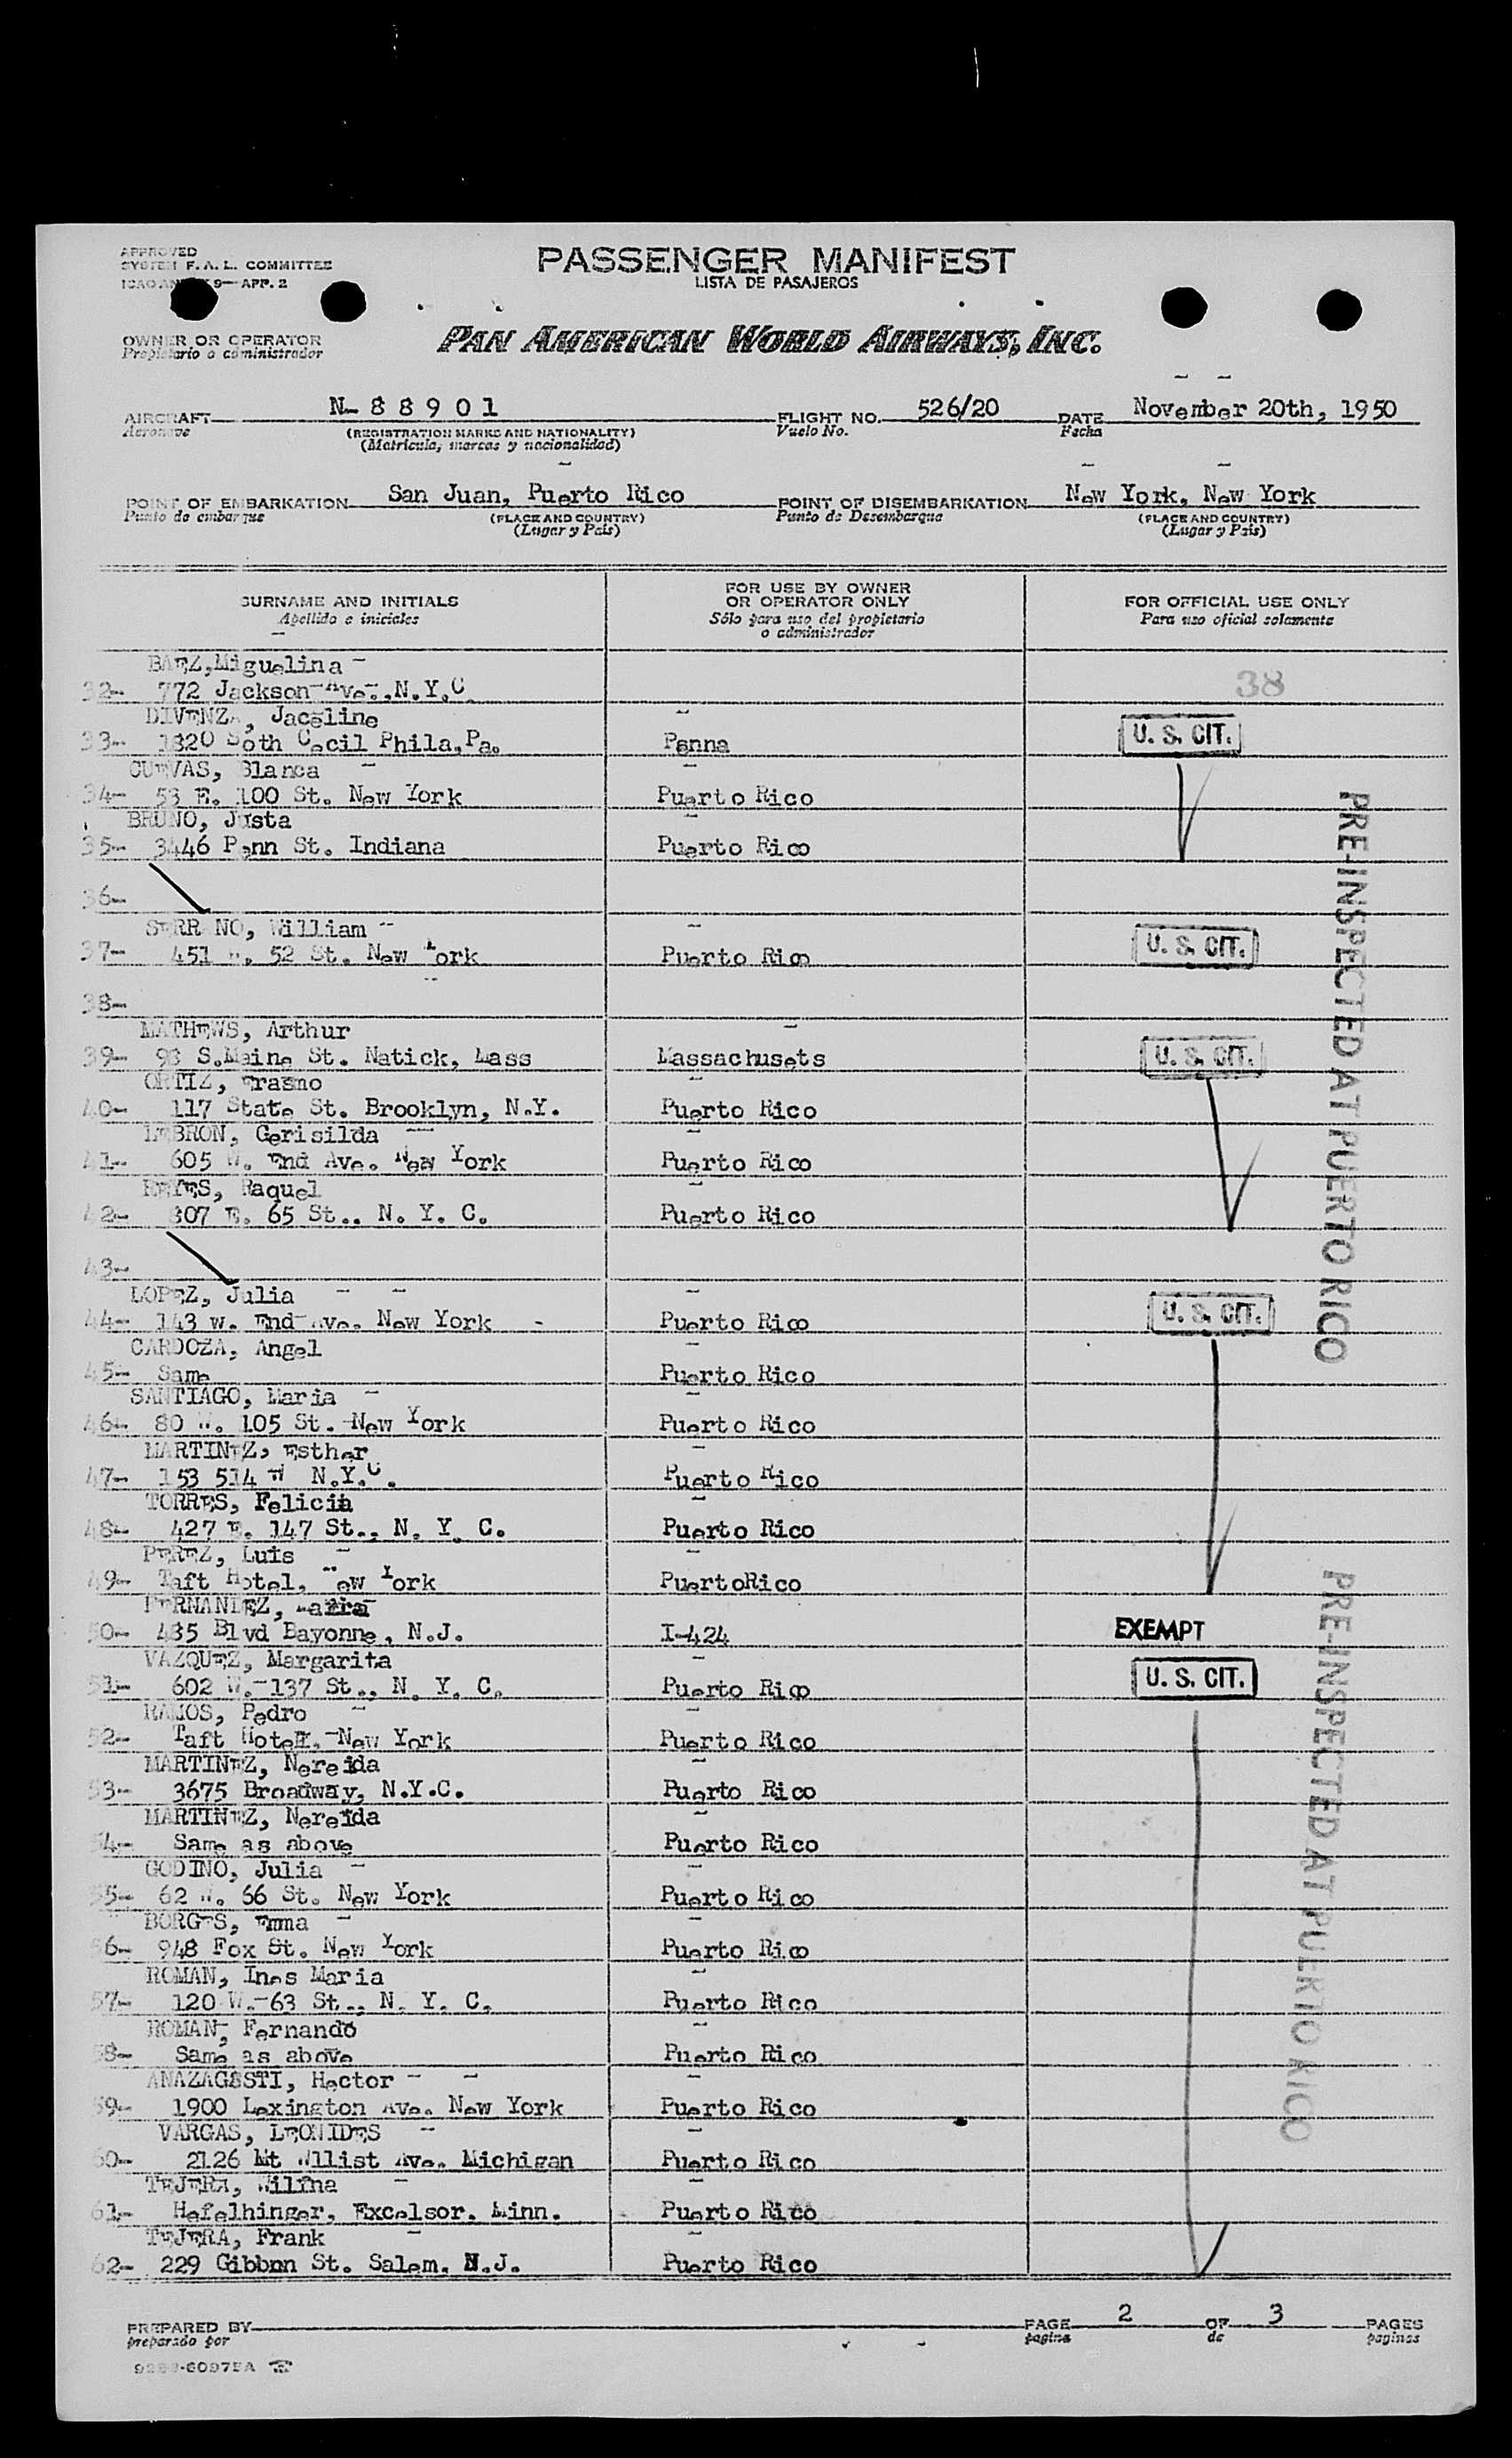 APPROVED
SYSTEM F. A. L. COMMITTEE
9—APP. 2
PASSENGER MANIFEST
LISTA DE PASAJEROS
OWNER OR OPERATOR
Propietario o administrador
PAN AMERICAN WORLD AIRWAYS, INC.
AIRCRAFT N-88901 FLIGHT NO. 526/20 DATE November 20th, 1950
Aeronave (REGISTRATION MARKS AND NATIONALITY) Vuelo No. Fecha
(Matrícula, marcas y nacionalidad)
POINT OF EMBARKATION San Juan, Puerto Rico POINT OF DISEMBARKATION New York, New York
Punto de embarque (PLACE AND COUNTRY) Punto de Desembarque (PLACE AND COUNTRY)
(Lugar y País) (Lugar y País)
SURNAME AND INITIALS
Apellido e iniciales
FOR USE BY OWNER
OR OPERATOR ONLY
Sólo para uso del propietario
o administrador
FOR OFFICIAL USE ONLY
Para uso oficial solamente
BAEZ,Miguelina
32- 772 Jackson Ave.,N.Y.C 38
DIVENZA, Jaceline
33- 1820 Soth Cecil Phila,Pa. Penna U. S. CIT.
CUEVAS, Blanca
34- 53 E. 100 St. New York Puerto Rico
BRUNO, Justa
35- 3446 Penn St. Indiana Puerto Rico
36-
SERRANO, William
37- 451 W. 52 St. New York Puerto Rico U. S. CIT.
38-
MATHEWS, Arthur
39- 93 S.Maine St. Natick, Mass Massachusets U. S. CIT.
ORTIZ, Erasmo
40- 117 State St. Brooklyn, N.Y. Puerto Rico
LEBRON, Gerisilda
41- 605 W. End Ave. New York Puerto Rico
REYES, Raquel
42- 307 E. 65 St., N. Y. C. Puerto Rico
43-
LOPEZ, Julia
44- 143 w. End Ave. New York Puerto Rico U. S. CIT.
CARDOZA, Angel
45- Same Puerto Rico
SANTIAGO, Maria
46- 80 W. 105 St. New York Puerto Rico
MARTINEZ, Esther
47- 153 514 W N.Y.C. Puerto Rico
TORRES, Felicia
48- 427 E. 147 St., N. Y. C. Puerto Rico
PEREZ, Luis
49- Taft Hotel, New York PuertoRico
FERNANDEZ, Maria
50- 485 Blvd Bayonne, N.J. I-424 EXEMPT
VAZQUEZ, Margarita
51- 602 W. 137 St., N. Y. C. Puerto Rico U. S. CIT.
RAMOS, Pedro
52- Taft Hotel, New York Puerto Rico
MARTINEZ, Nereida
53- 3675 Broadway, N.Y.C. Puerto Rico
MARTINEZ, Nereida
54- Same as above Puerto Rico
GODINO, Julia
55- 62 W. 66 St. New York Puerto Rico
BORGES, Emma
56- 948 Fox St. New York Puerto Rico
ROMAN, Ines Maria
57- 120 W. 63 St., N. Y. C. Puerto Rico
ROMAN, Fernando
58- Same as above Puerto Rico
ANAZAGASTI, Hector
59- 1900 Lexington Ave. New York Puerto Rico
VARGAS, LEONIDES
60- 2126 Mt Wllist Ave. Michigan Puerto Rico
TEJERA, Wilma
61- Hefelhinger, Excelsor, Minn. Puerto Rico
TEJERA, Frank
62- 229 Gibbon St. Salem, N.J. Puerto Rico
PRE-INSPECTED AT PUERTO RICO
PRE-INSPECTED AT PUERTO RICO
PREPARED BY PAGE 2 OF 3 PAGES
preparado por pagina de paginas